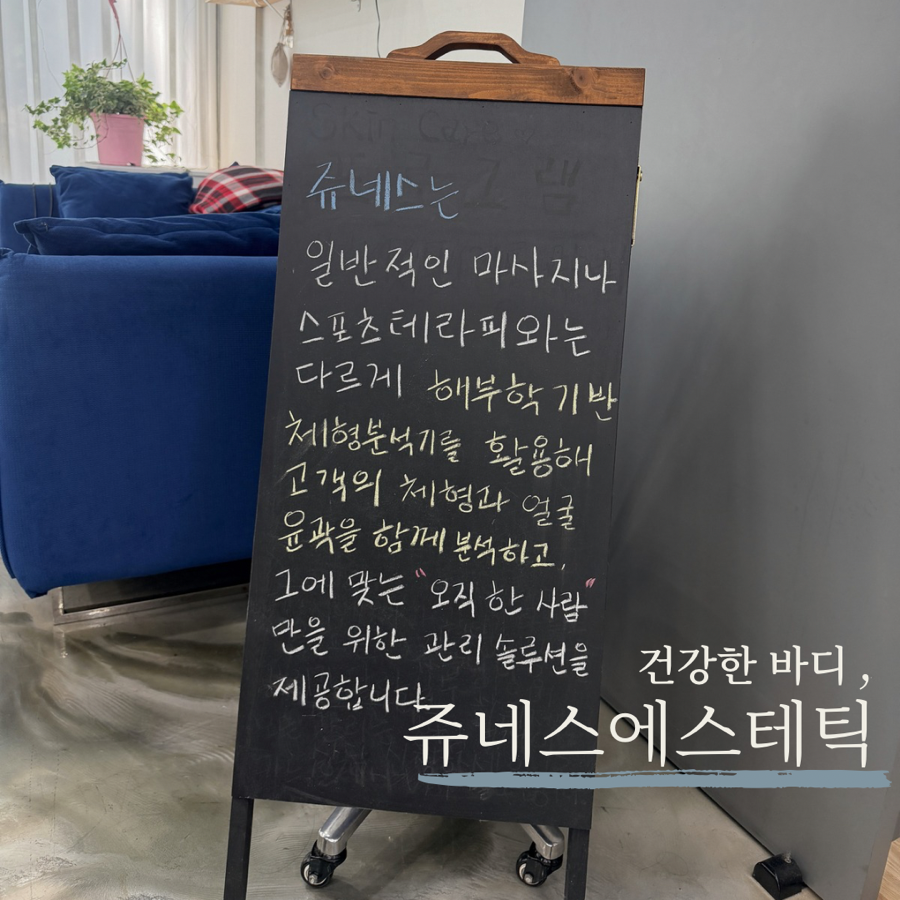 Skin Care
쥬네스는
일반적인 마사지나
스포츠테라피와는
다르게 해부학 기반
체형분석기를 활용해
고객의 체형과 얼굴
윤곽을 함께 분석하고,
그에 맞는 "오직 한 사람"
만을 위한 관리 솔루션을
제공합니다.
건강한 바디,
쥬네스에스테틱